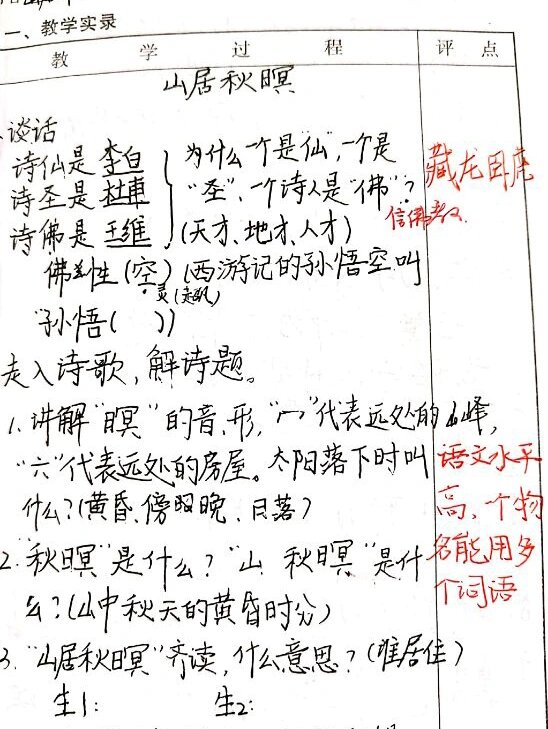 一、教学实录
教学过程
评点
山居秋暝
谈话
诗仙是李白
诗圣是杜甫
诗佛是王维
为什么一个是“仙”，一个是
“圣”，一个诗人是“佛”？
(天才、地才、人才)
藏龙卧虎
信佛教
佛性(空)(西游记的孙悟空叫
灵
孙悟( ))
走入诗歌，解诗题。
1.讲解“暝”的音、形，“冖”代表远处的山峰，
“六”代表远处的房屋。太阳落下时叫
什么？(黄昏、傍晚、日落)
语文水平
高，个物
名能用多
个词语
2.“秋暝”是什么？“山 秋暝”是什
么？(山中秋天的黄昏时分)
3.“山居秋暝”齐读，什么意思？(谁居住)
生1： 生2：